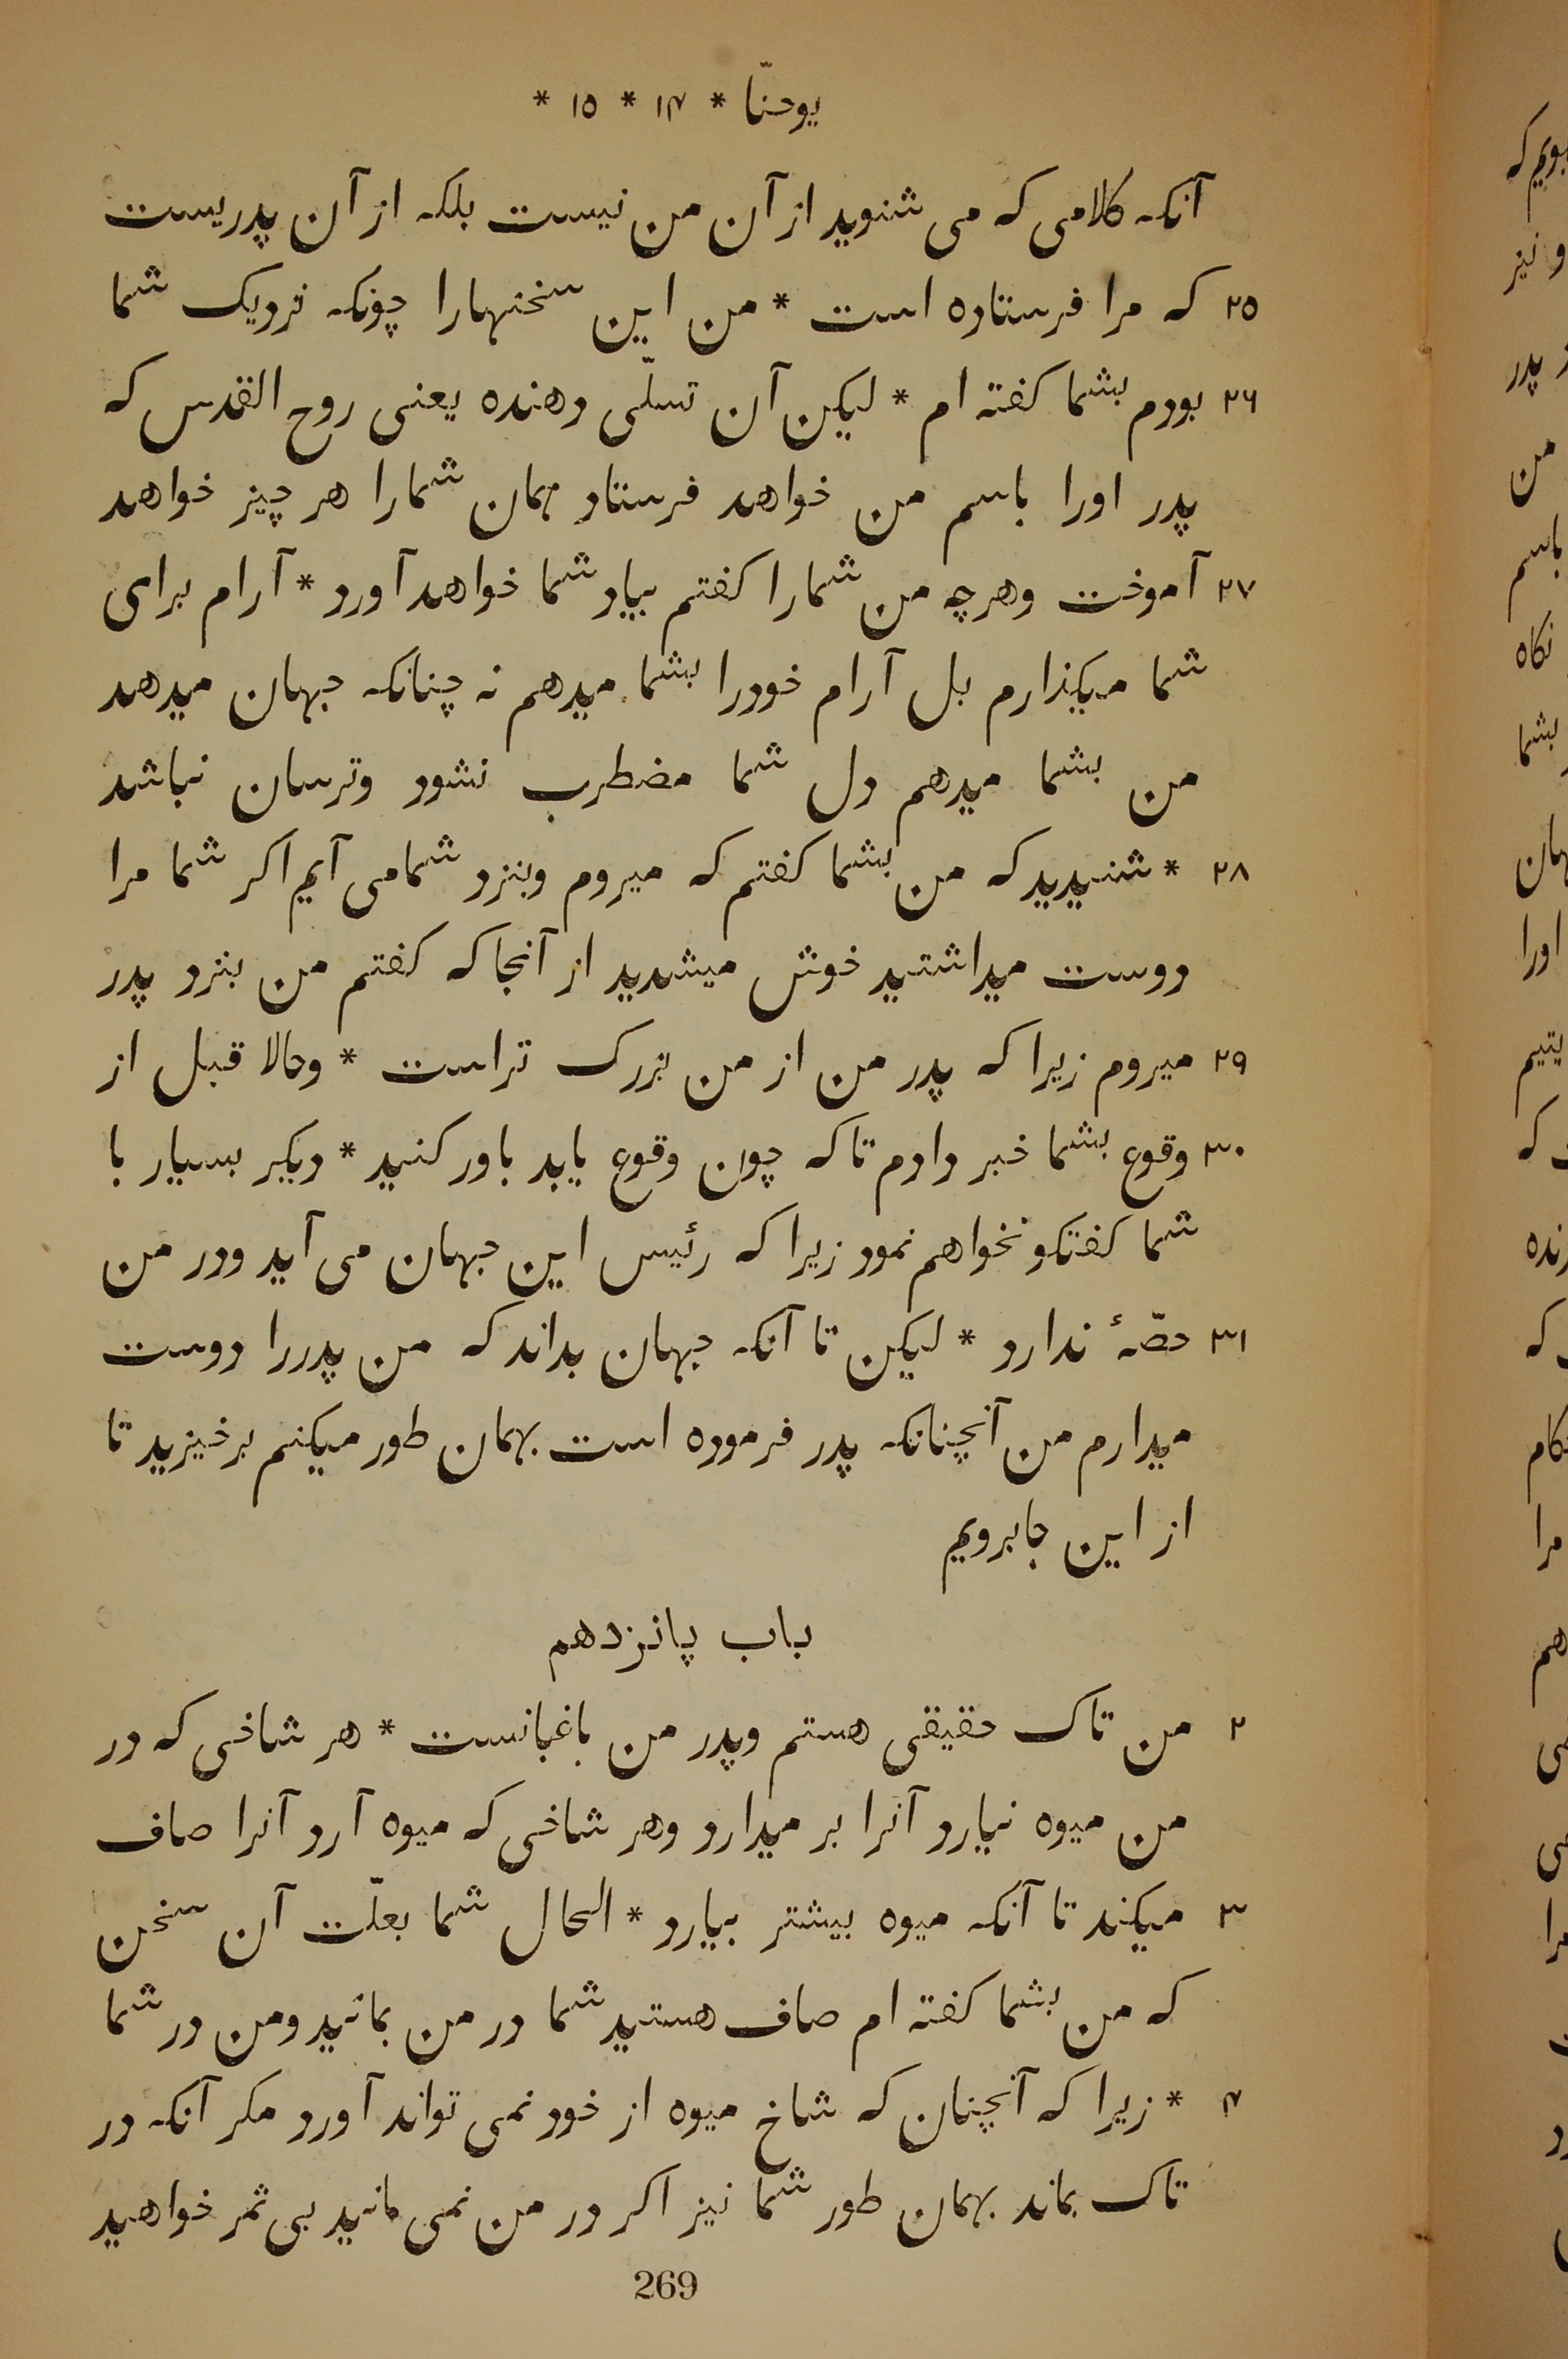 یوحنّا * ۱۴ * ۱۵ *
آنکه کلامی که می شنوید از آن من نیست بلکه از آن پدریست
۲۵ که مرا فرستاده است * من این سخنهارا چونکه نزدیک شما
۲۶ بودم بشما کفته ام * لیکن آن تسلّی دهنده یعنی روح القدس که
پدر اورا باسم من خواهد فرستاد همان شمارا هر چیز خواهد
۲۷ آموخت وهرچه من شمارا کفتم بیاد شما خواهد آورد * آرام برای
شما میکذارم بل آرام خودرا بشما میدهم نه چنانکه جهان میدهد
من بشما میدهم دل شما مضطرب نشود وترسان نباشد
۲۸ * شنیدید که من بشما کفتم که میروم وبنزد شما می آیم اکر شما مرا
دوست میداشتید خوش میشدید از آنجا که کفتم من بنزد پدر
۲۹ میروم زیرا که پدر من از من بزرک تراست * وحالا قبل از
۳۰ وقوع بشما خبر دادم تا که چون وقوع یابد باور کنید * دیکر بسیار با
شما کفتکو نخواهم نمود زیرا که رئیس این جهان می آید ودر من
۳۱ حصّهٔ ندارد * لیکن تا آنکه جهان بداند که من پدررا دوست
میدارم من آنچنانکه پدر فرموده است بهمان طور میکنم برخیزید تا
از این جا برویم
باب پانزدهم
۲ من تاک حقیقی هستم وپدر من باغبانست * هر شاخی که در
من میوه نیارد آنرا بر میدارد وهر شاخی که میوه آرد آنرا صاف
۳ میکند تا آنکه میوه بیشتر بیارد * الحال شما بعلّت آن سخن
که من بشما کفته ام صاف هستید شما در من بمانید ومن در شما
۴ * زیرا که آنچنان که شاخ میوه از خود نمی تواند آورد مکر آنکه در
تاک بماند بهمان طور شما نیز اکر در من نمی مانید بی ثمر خواهید
269